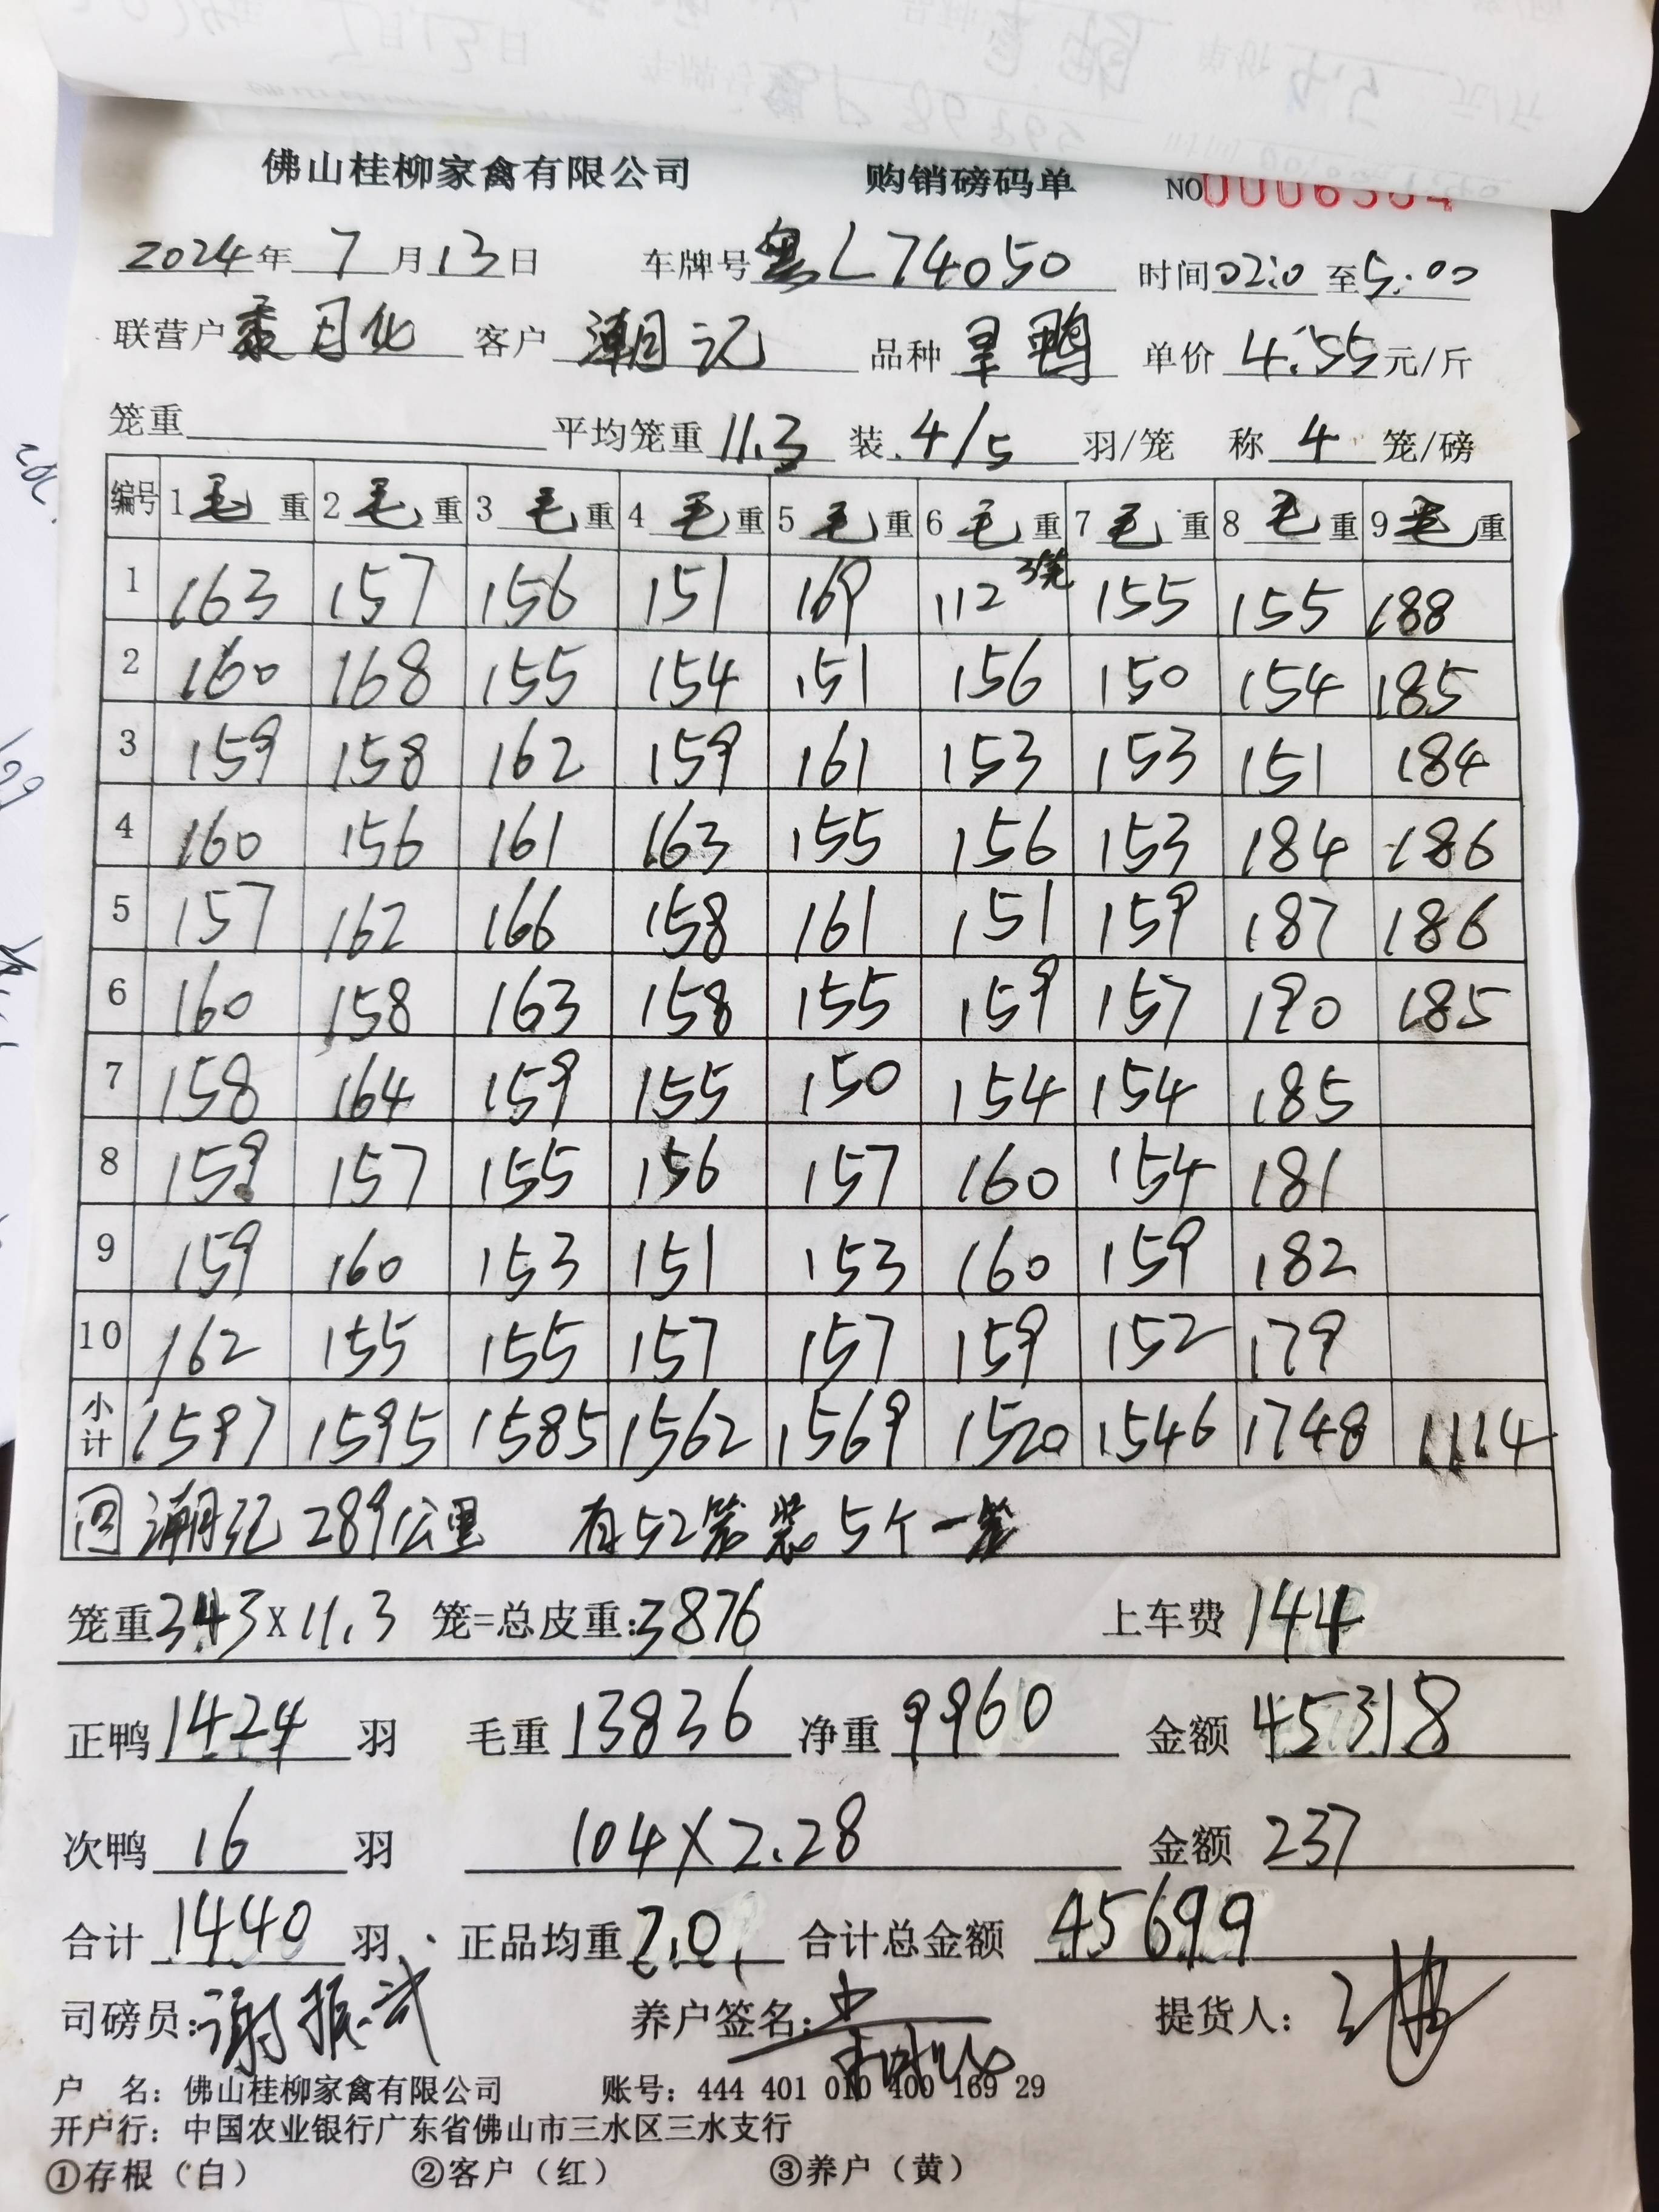 佛山桂柳家禽有限公司 购销磅码单 NO0006304
2024年 7月13日 车牌号 粤L74050 时间02:0至5:00
联营户 月化 客户 潮记 品种 旱鸭 单价 4.55元/斤
笼重 平均笼重 11.3 装 4/5 羽/笼 称 4 笼/磅
编号 1毛重 2毛重 3毛重 4毛重 5毛重 6毛重 7毛重 8毛重 9毛重
1 163 157 156 151 169 112 3笼 155 155 188
2 160 168 155 154 151 156 150 154 185
3 159 158 162 159 161 153 153 151 184
4 160 156 161 163 155 156 153 184 186
5 157 162 166 158 161 151 159 187 186
6 160 158 163 158 155 159 157 190 185
7 158 164 159 155 150 154 154 185
8 159 157 155 156 157 160 154 181
9 159 160 153 151 153 160 159 182
10 162 155 155 157 157 159 152 179
小计 1597 1595 1585 1562 1569 1520 1546 1748 1114
回潮记 289公里 有52笼装5个一笼
笼重343x11.3 笼=总皮重:3876 上车费 144
正鸭 1424 羽 毛重 13836 净重 9960 金额 45318
次鸭 16 羽 104×2.28 金额 237
合计 1440 羽 正品均重 7.0 合计总金额 45699
司磅员:谢振武 养户签名: 提货人:
户 名: 佛山桂柳家禽有限公司 账号: 444 401 010 400 169 29
开户行: 中国农业银行广东省佛山市三水区三水支行
①存根(白) ②客户(红) ③养户(黄)